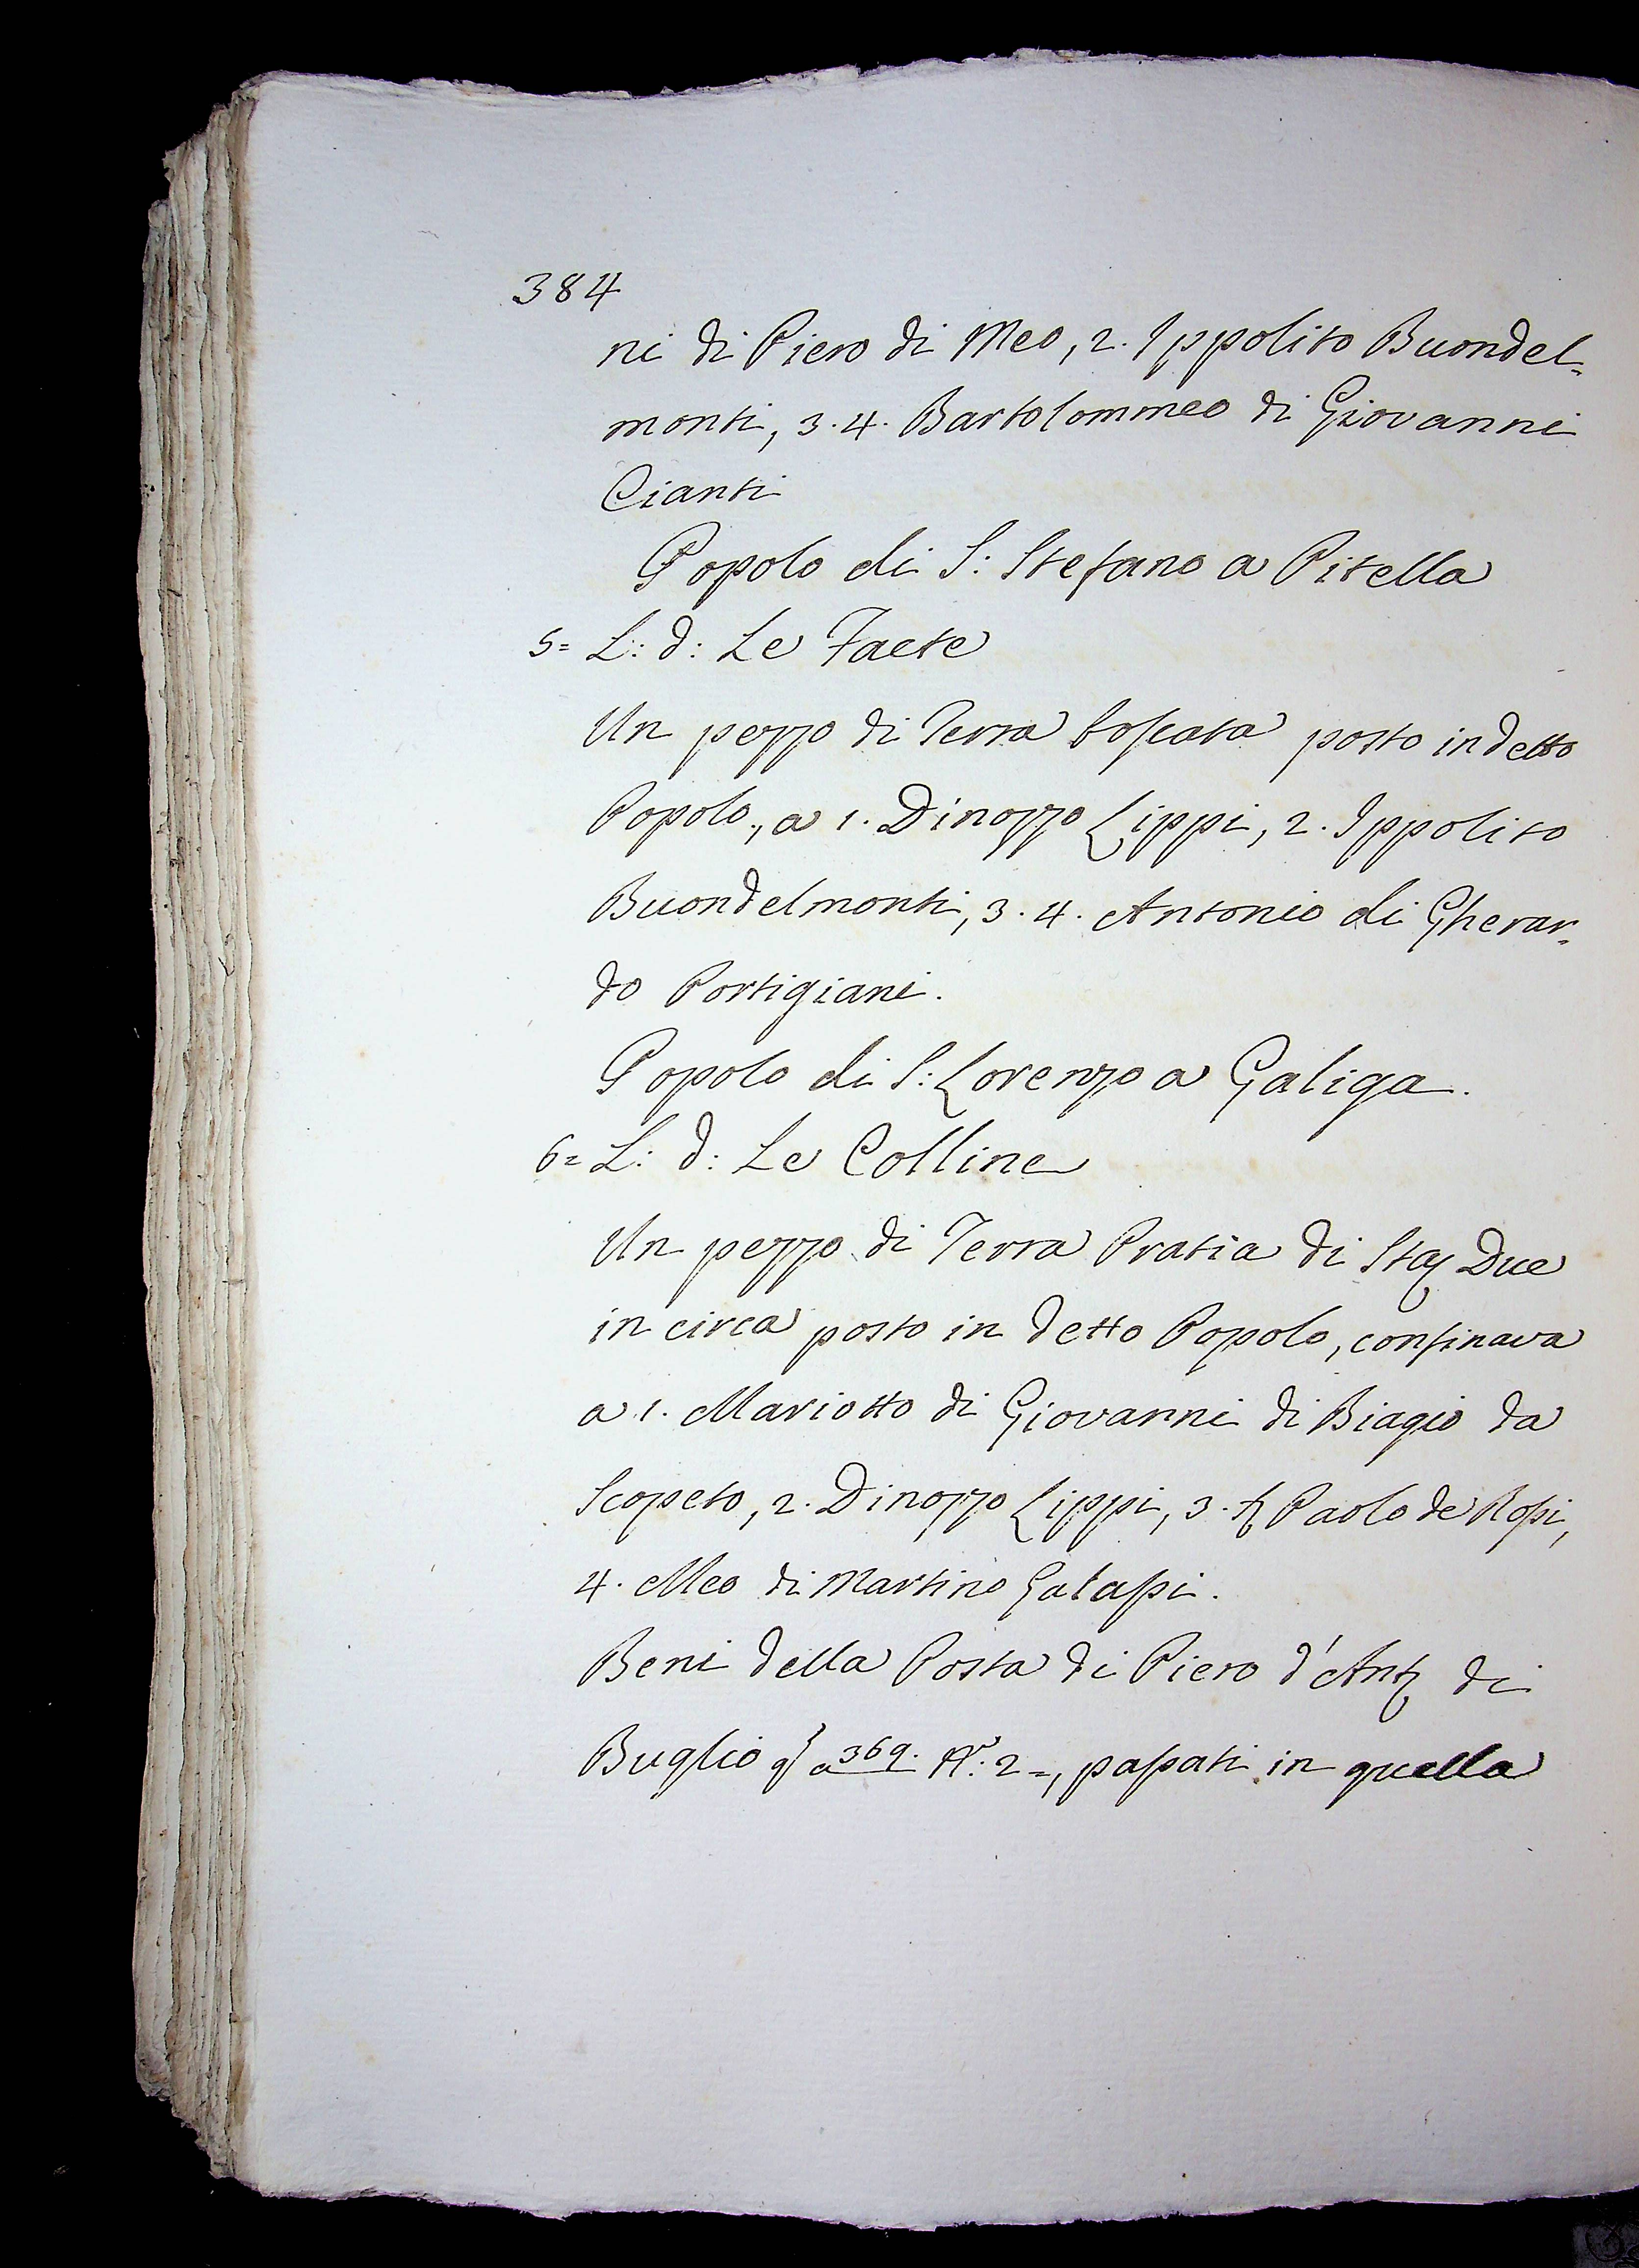 384
ni di Piero di Meo, 2. Ippolito Buondel=
monti, 3. 4. Bartolommeo di Giovanni
Cianti
Popolo di S: Stefano a Pitella
5= L: d: Le Faete
Un pezzo di Terra boscata posto in detto
Popolo, a 1. Dinozzo Lippi, 2. Ippolito
Buondelmonti, 3. 4. Antonio di Gherar=
do Portigiani.
Popolo di S: Lorenzo a Galiga.
6= L: d: Le Colline
Un pezzo di Terra Pratia di Sta Due
in circa posto in detto Popolo, confinava
a 1. Mariotto di Giovanni di Biagio da
Scopeto, 2. Dinozzo Lippi, 3. Paolo de Rossi,
4. Meo di Martino Galassi.
Beni della Posta di Piero d'Ant di
Buglio a 369. 2=, passati in quella